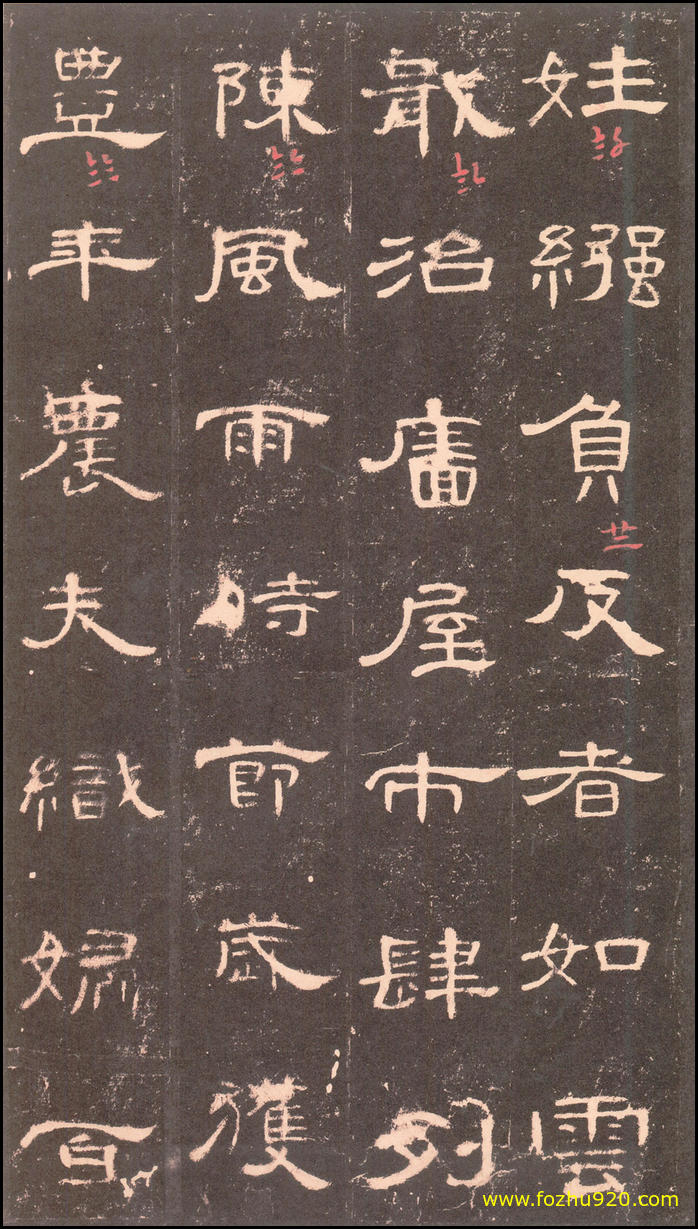 姓繈負反者如雲
戢治廧屋市肆列
陳風雨時節歲獲
豊年農夫織婦百
www.fozhu920.com